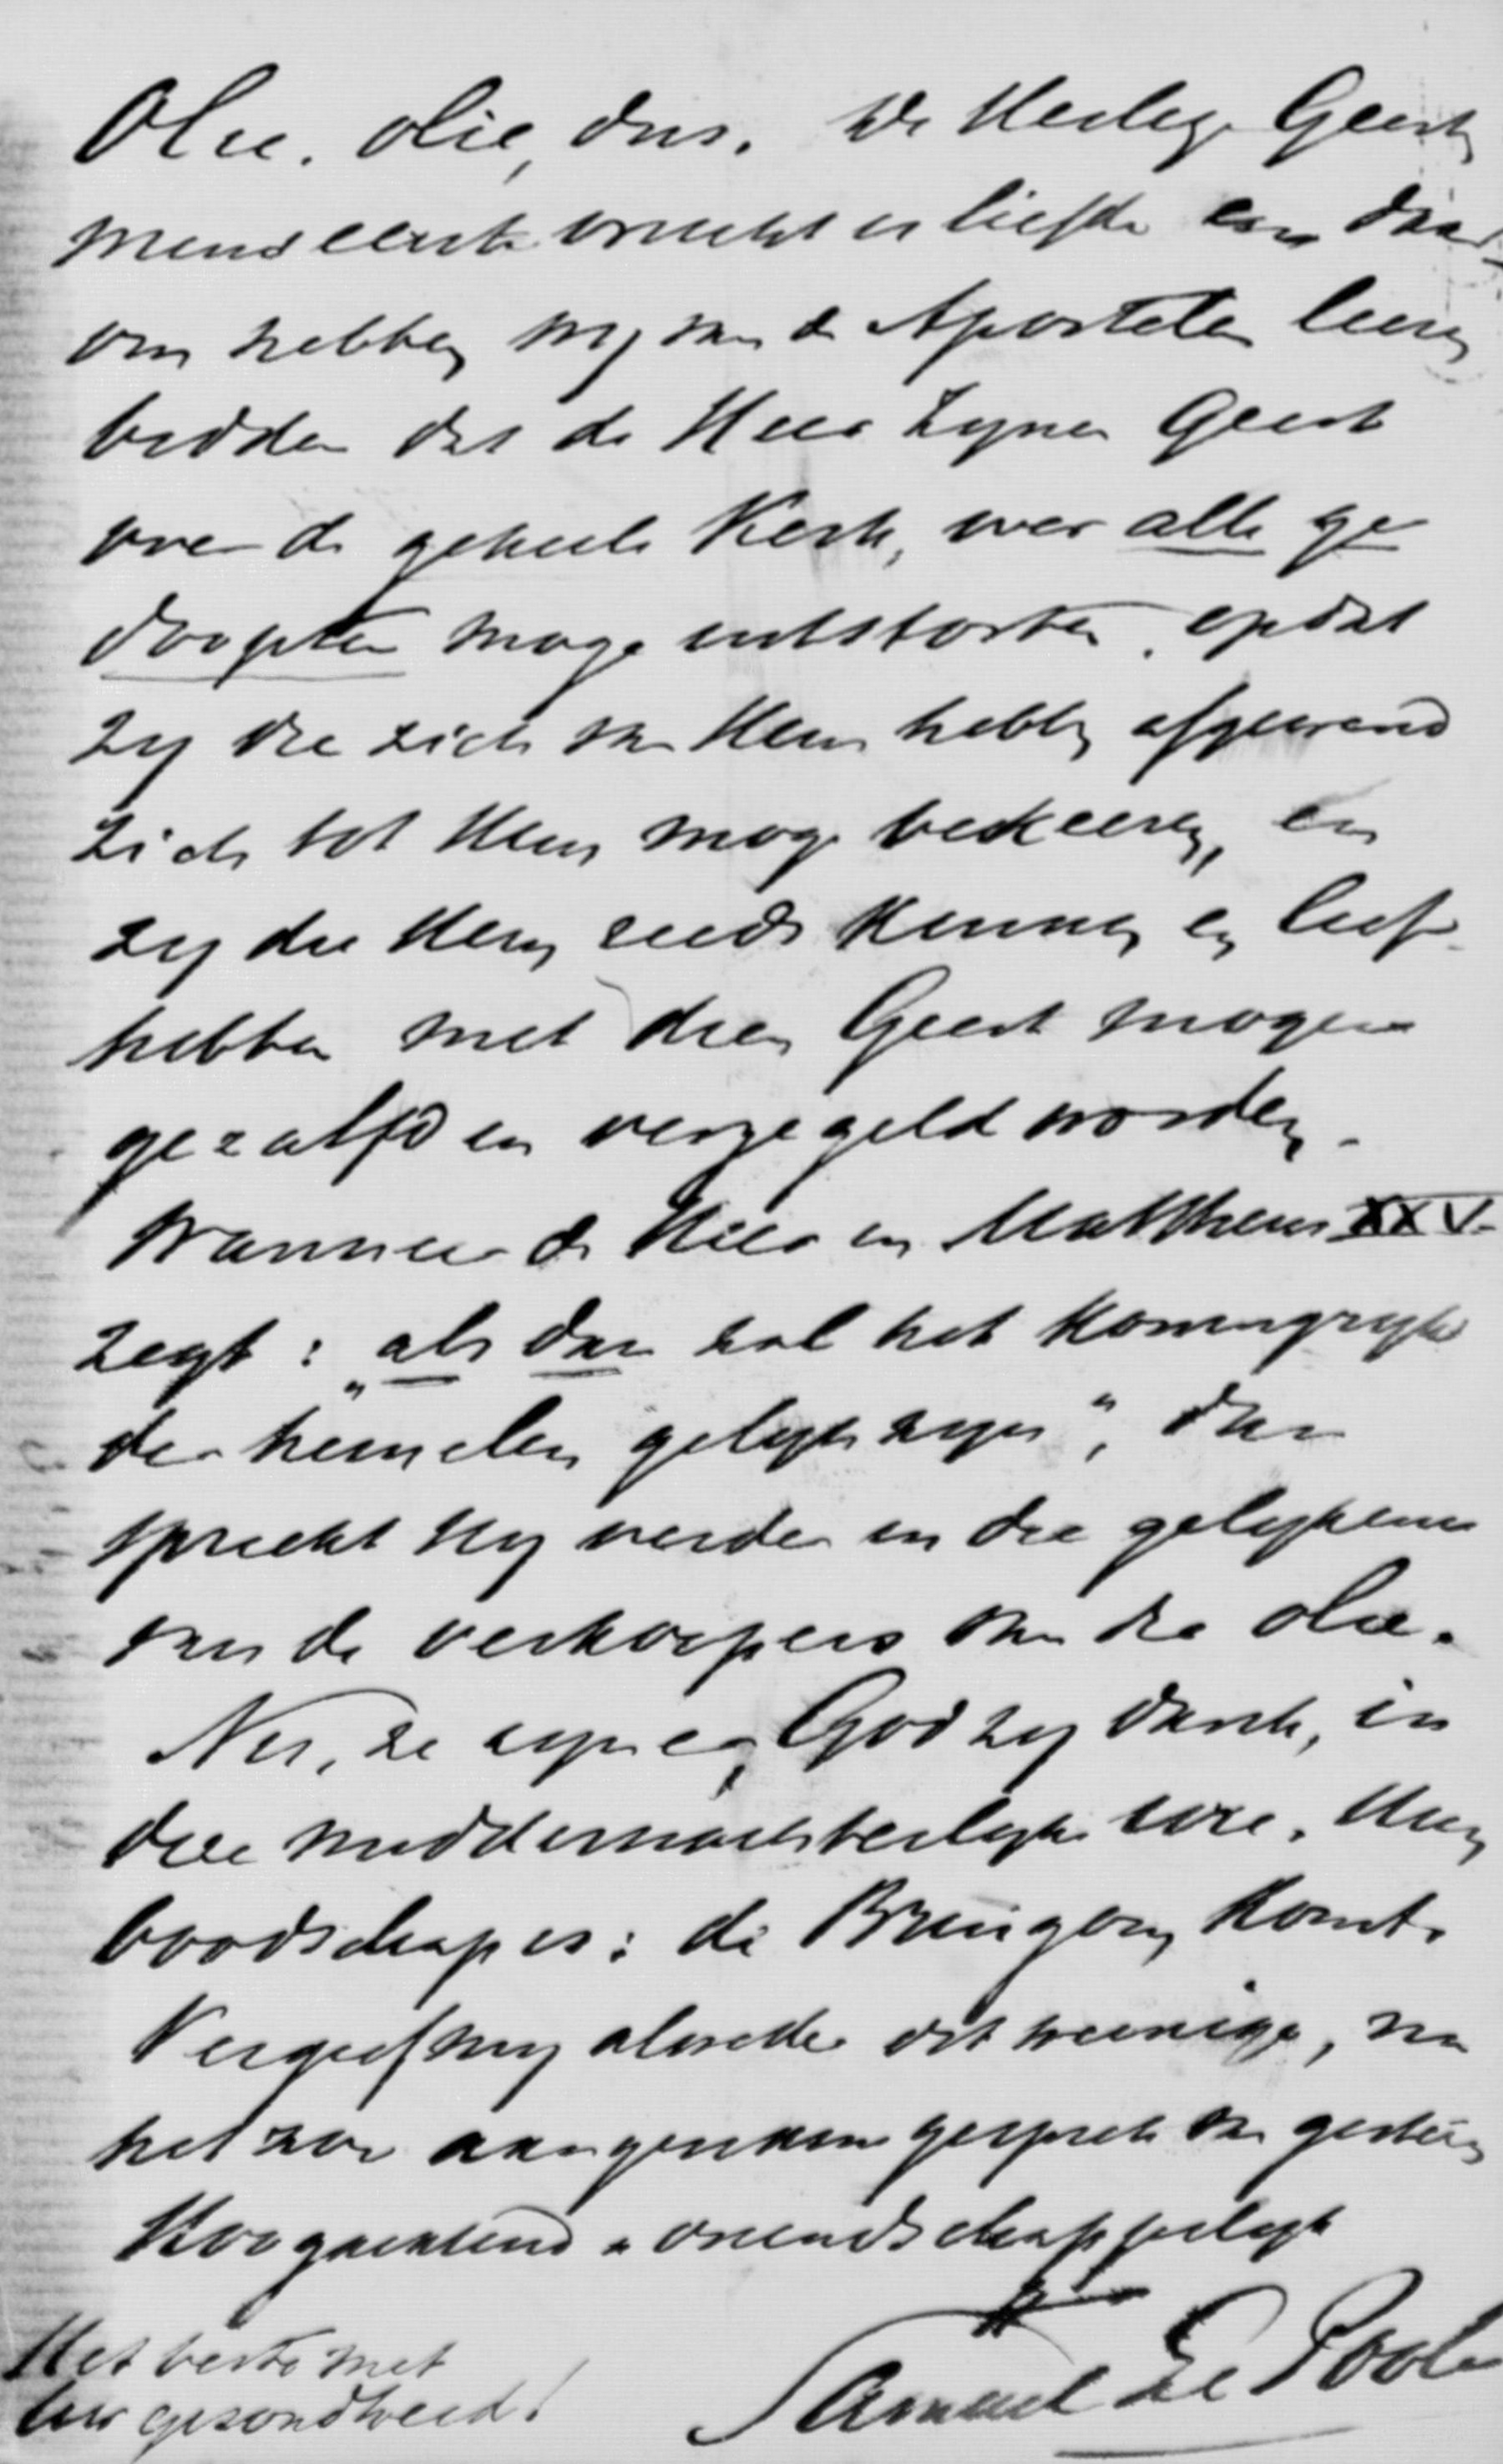 Olie, olie, dus. De Heilige Geest,
wiens eerste vrucht is liefde en daar-
om hebben wy van de Apostelen leeren
bidden dat de Heer Zynen Geest
over de geheele Kerk, over alle ge
doopten moge uitstorten, opdat
zy die zich van Hem hebben afgewend
zich tot Hem moge bekeeren, en
zy die Hem reeds kennen en lief-
hebben met dien Geest mogen
gezalfd en verzegeld worden.
Wanneer de Heer in Mattheus XXV
zegt: „als dan zal het Koningryk
der hemelen gelyk zyn", dan
spreekt Hy verder in die gelykenis
van de verkoopers van die olie.
Nu, ze zyn er, God zy dank, in
deze middernachtelyke ure. Hun
boodschap is: de Bruigom komt.
Vergeef my alvorder dit weinige, na
het zoo aangenaam gesprek van gisteren
Hoogachtend & vriendschappelyk
Samuel Le Poole
Het beste met
uw gezondheid!